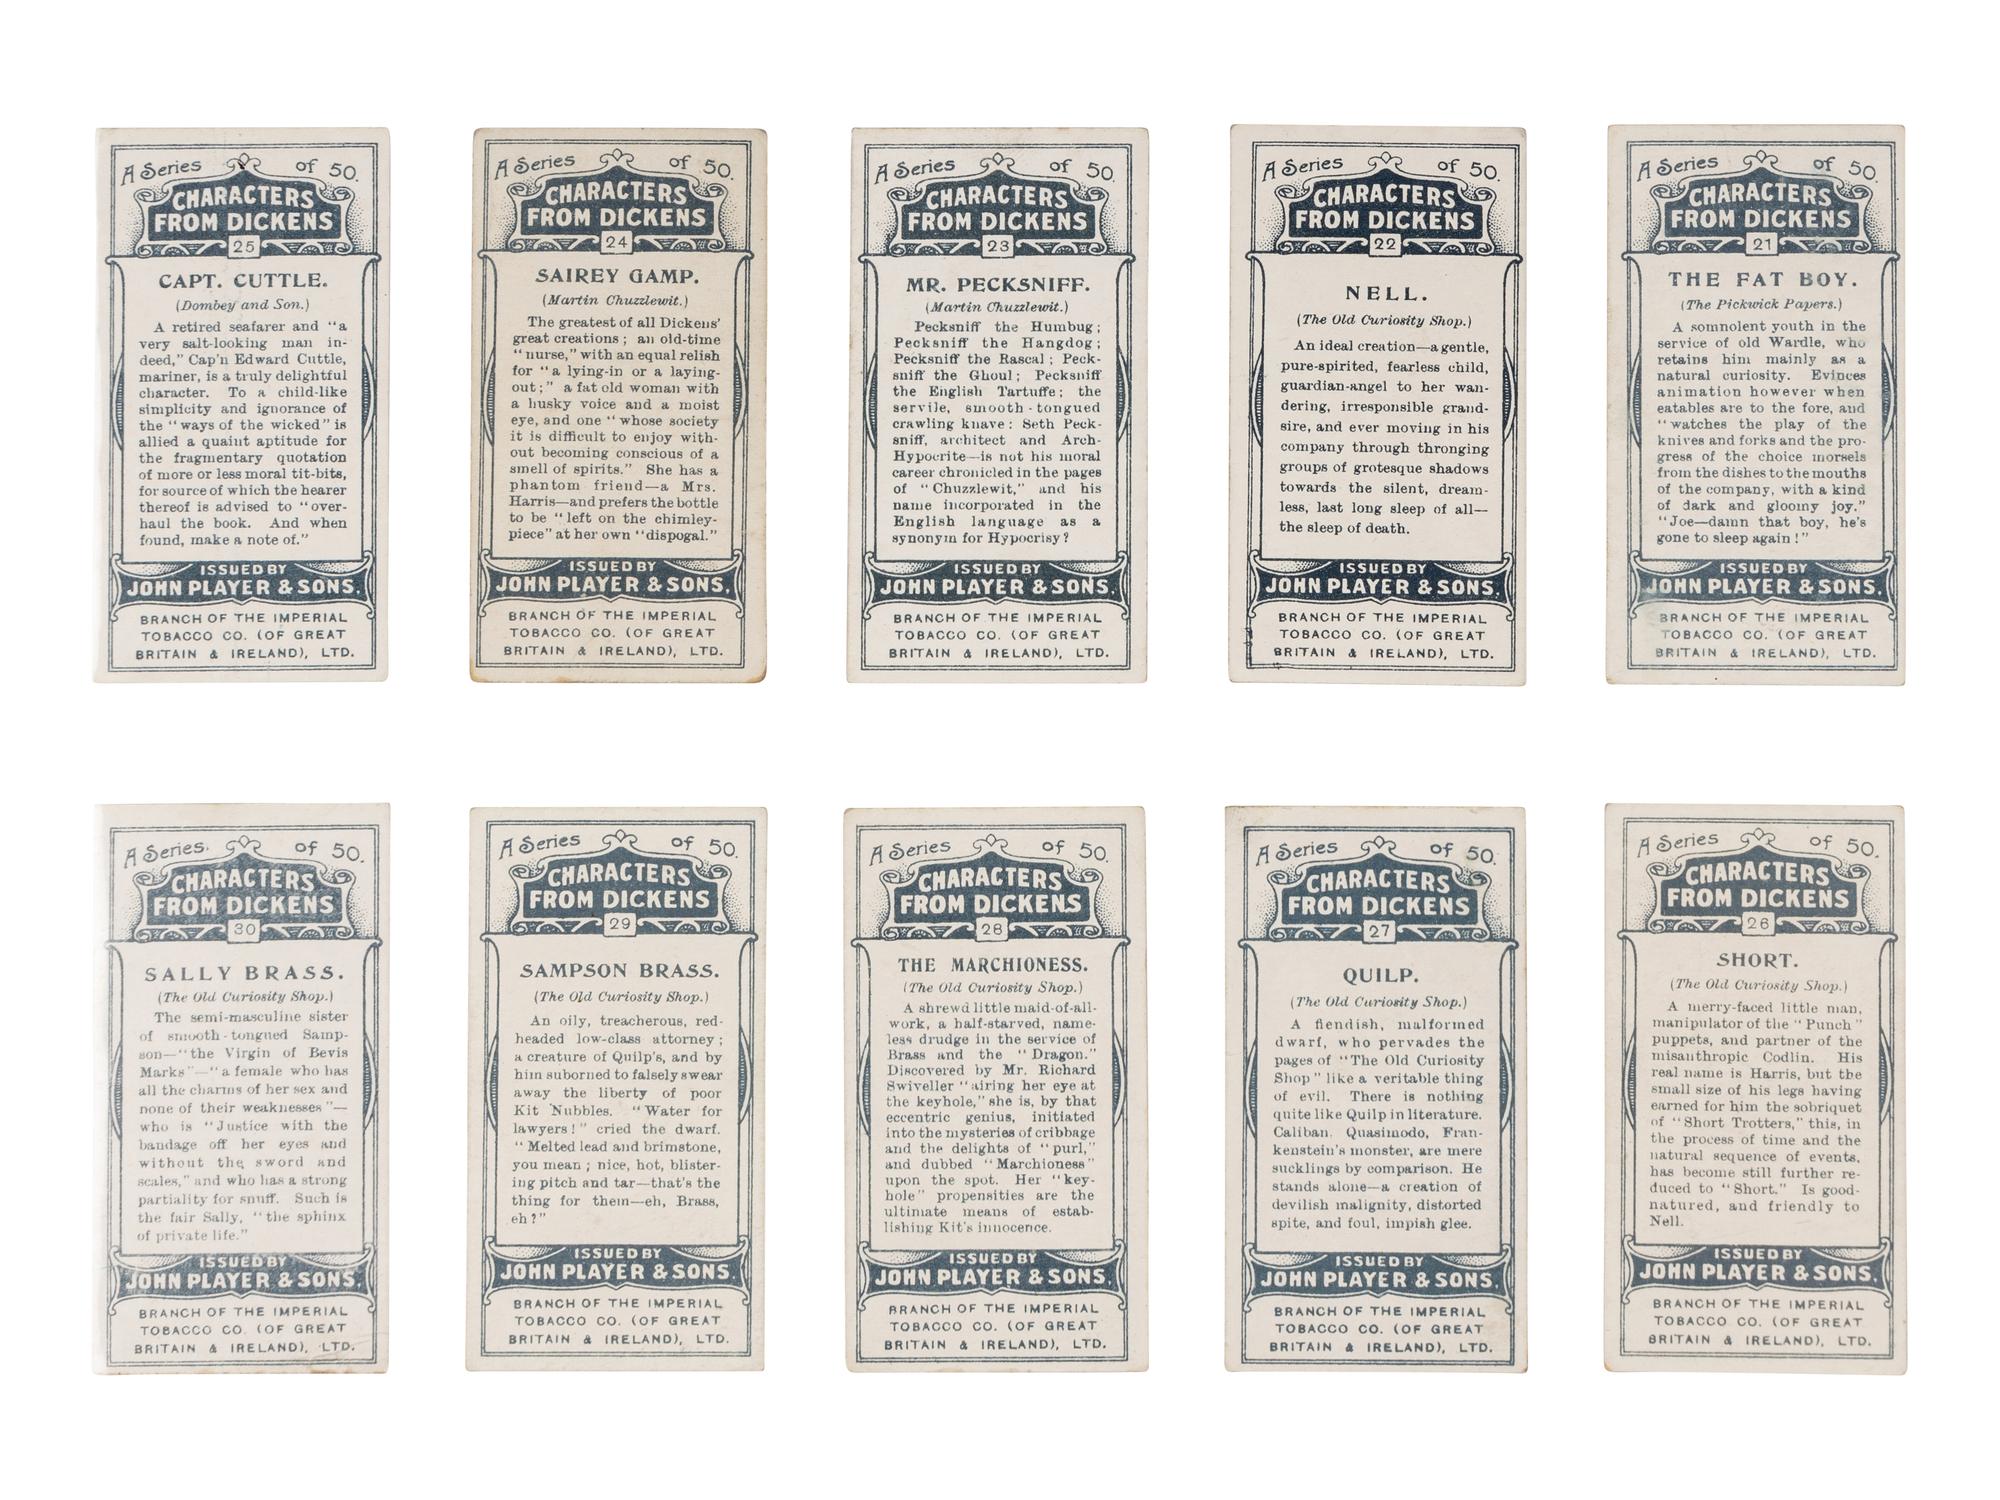 A Series of 50.
CHARACTERS
FROM DICKENS
25
CAPT. CUTTLE.
(Dombey and Son.)
A retired seafarer and "a
very salt-looking man in-
deed," Cap'n Edward Cuttle,
mariner, is a truly delightful
character. To a child-like
simplicity and ignorance of
the "ways of the wicked" is
allied a quaint aptitude for
the fragmentary quotation
of more or less moral tit-bits,
for source of which the hearer
thereof is advised to "over-
haul the book. And when
found, make a note of."
ISSUED BY
JOHN PLAYER & SONS.
BRANCH OF THE IMPERIAL
TOBACCO CO. (OF GREAT
BRITAIN & IRELAND), LTD.
A Series of 50.
CHARACTERS
FROM DICKENS
24
SAIREY GAMP.
(Martin Chuzzlewit.)
The greatest of all Dickens'
great creations; an old-time
"nurse," with an equal relish
for "a lying-in or a laying-
out;" a fat old woman with
a husky voice and a moist
eye, and one "whose society
it is difficult to enjoy with-
out becoming conscious of a
smell of spirits." She has a
phantom friend—a Mrs.
Harris—and prefers the bottle
to be "left on the chimley-
piece" at her own "dispogal."
ISSUED BY
JOHN PLAYER & SONS.
BRANCH OF THE IMPERIAL
TOBACCO CO. (OF GREAT
BRITAIN & IRELAND), LTD.
A Series of 50.
CHARACTERS
FROM DICKENS
23
MR. PECKSNIFF.
(Martin Chuzzlewit.)
Pecksniff the Humbug;
Pecksniff the Hangdog;
Pecksniff the Rascal; Peck-
sniff the Ghoul; Pecksniff
the English Tartuffe; the
servile, smooth-tongued
crawling knave: Seth Peck-
sniff, architect and Arch-
Hypocrite—is not his moral
career chronicled in the pages
of "Chuzzlewit," and his
name incorporated in the
English language as a
synonym for Hypocrisy?
ISSUED BY
JOHN PLAYER & SONS.
BRANCH OF THE IMPERIAL
TOBACCO CO. (OF GREAT
BRITAIN & IRELAND), LTD.
A Series of 50.
CHARACTERS
FROM DICKENS
22
NELL.
(The Old Curiosity Shop.)
An ideal creation—a gentle,
pure-spirited, fearless child,
guardian-angel to her wan-
dering, irresponsible grand-
sire, and ever moving in his
company through thronging
groups of grotesque shadows
towards the silent, dream-
less, last long sleep of all—
the sleep of death.
ISSUED BY
JOHN PLAYER & SONS.
BRANCH OF THE IMPERIAL
TOBACCO CO. (OF GREAT
BRITAIN & IRELAND), LTD.
A Series of 50.
CHARACTERS
FROM DICKENS
21
THE FAT BOY.
(The Pickwick Papers.)
A somnolent youth in the
service of old Wardle, who
retains him mainly as a
natural curiosity. Evinces
animation however when
eatables are to the fore, and
"watches the play of the
knives and forks and the pro-
gress of the choice morsels
from the dishes to the mouths
of the company, with a kind
of dark and gloomy joy."
"Joe—damn that boy, he's
gone to sleep again!"
ISSUED BY
JOHN PLAYER & SONS.
BRANCH OF THE IMPERIAL
TOBACCO CO. (OF GREAT
BRITAIN & IRELAND), LTD.
A Series of 50.
CHARACTERS
FROM DICKENS
30
SALLY BRASS.
(The Old Curiosity Shop.)
The semi-masculine sister
of smooth-tongued Samp-
son—"the Virgin of Bevis
Marks"—"a female who has
all the charms of her sex and
none of their weaknesses"—
who is "Justice with the
bandage off her eyes and
without the sword and
scales," and who has a strong
partiality for snuff. Such is
the fair Sally, "the sphinx
of private life."
ISSUED BY
JOHN PLAYER & SONS.
BRANCH OF THE IMPERIAL
TOBACCO CO. (OF GREAT
BRITAIN & IRELAND), LTD.
A Series of 50.
CHARACTERS
FROM DICKENS
29
SAMPSON BRASS.
(The Old Curiosity Shop.)
An oily, treacherous, red-
headed low-class attorney;
a creature of Quilp's, and by
him suborned to falsely swear
away the liberty of poor
Kit Nubbles. "Water for
lawyers!" cried the dwarf.
"Melted lead and brimstone,
you mean; nice, hot, blister-
ing pitch and tar—that's the
thing for them—eh, Brass,
eh?"
ISSUED BY
JOHN PLAYER & SONS.
BRANCH OF THE IMPERIAL
TOBACCO CO. (OF GREAT
BRITAIN & IRELAND), LTD.
A Series of 50.
CHARACTERS
FROM DICKENS
28
THE MARCHIONESS.
(The Old Curiosity Shop.)
A shrewd little maid-of-all-
work, a half-starved, name-
less drudge in the service of
Brass and the "Dragon."
Discovered by Mr. Richard
Swiveller "airing her eye at
the keyhole," she is, by that
eccentric genius, initiated
into the mysteries of cribbage
and the delights of "purl,"
and dubbed "Marchioness"
upon the spot. Her "key-
hole" propensities are the
ultimate means of estab-
lishing Kit's innocence.
ISSUED BY
JOHN PLAYER & SONS.
BRANCH OF THE IMPERIAL
TOBACCO CO. (OF GREAT
BRITAIN & IRELAND), LTD.
A Series of 50.
CHARACTERS
FROM DICKENS
27
QUILP.
(The Old Curiosity Shop.)
A fiendish, malformed
dwarf, who pervades the
pages of "The Old Curiosity
Shop" like a veritable thing
of evil. There is nothing
quite like Quilp in literature.
Caliban, Quasimodo, Fran-
kenstein's monster, are mere
sucklings by comparison. He
stands alone—a creation of
devilish malignity, distorted
spite, and foul, impish glee.
ISSUED BY
JOHN PLAYER & SONS.
BRANCH OF THE IMPERIAL
TOBACCO CO. (OF GREAT
BRITAIN & IRELAND), LTD.
A Series of 50.
CHARACTERS
FROM DICKENS
26
SHORT.
(The Old Curiosity Shop.)
A merry-faced little man,
manipulator of the "Punch"
puppets, and partner of the
misanthropic Codlin. His
real name is Harris, but the
small size of his legs having
earned for him the sobriquet
of "Short Trotters," this, in
the process of time and the
natural sequence of events,
has become still further re-
duced to "Short." Is good-
natured, and friendly to
Nell.
ISSUED BY
JOHN PLAYER & SONS.
BRANCH OF THE IMPERIAL
TOBACCO CO. (OF GREAT
BRITAIN & IRELAND), LTD.